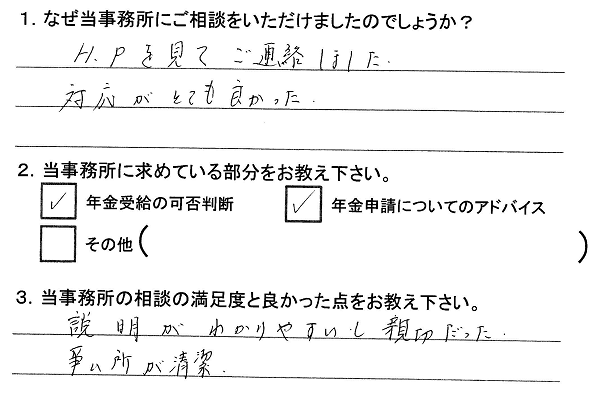 1. なぜ当事務所にご相談をいただけましたのでしょうか？
H.Pを見てご連絡しました.
対応がとても良かった.
2. 当事務所に求めている部分をお教え下さい。
✓ 年金受給の可否判断 ✓ 年金申請についてのアドバイス
その他（ ）
3. 当事務所の相談の満足度と良かった点をお教え下さい。
説明がわかりやすいし親切だった.
事ム所が清潔.